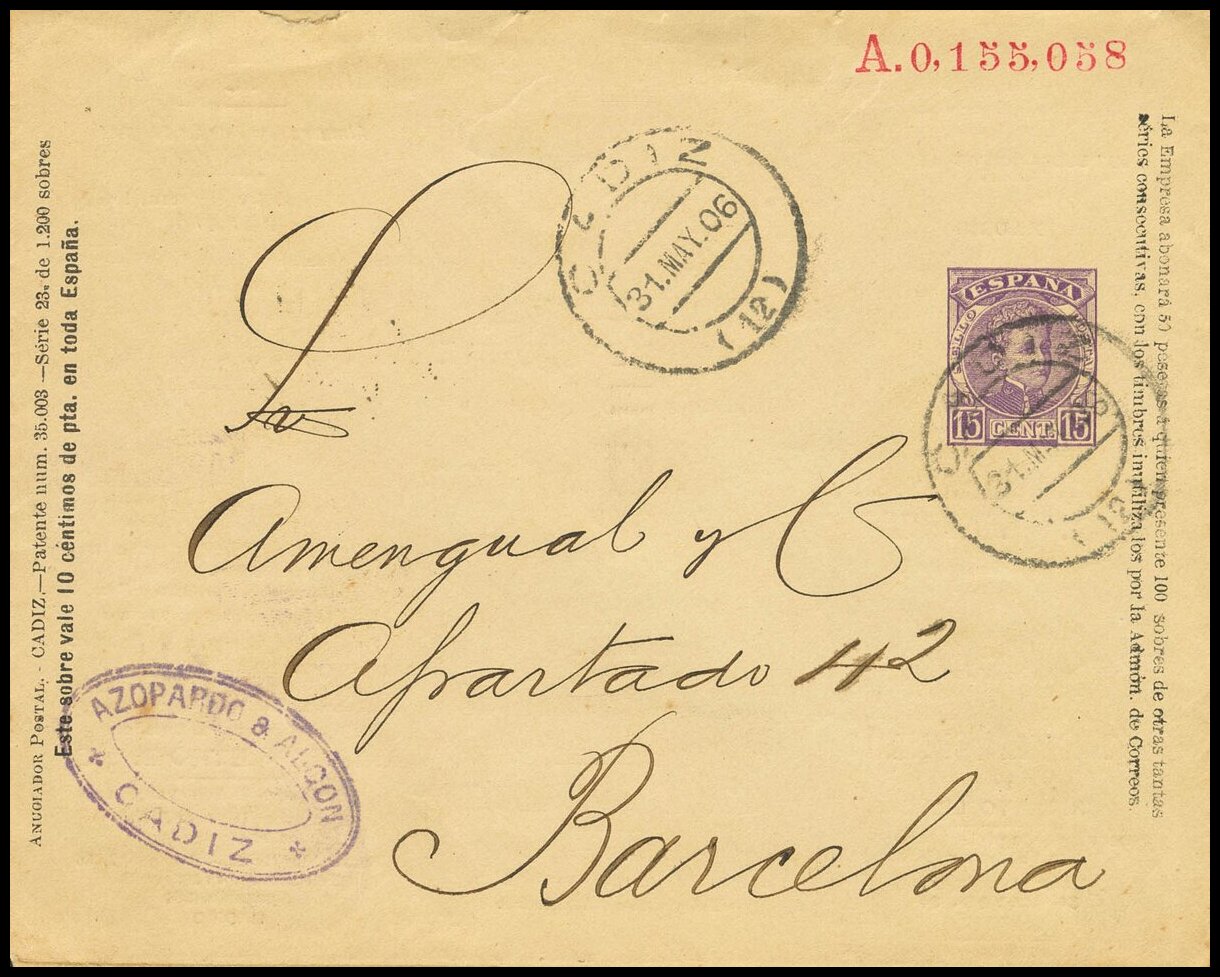 A.0,155,058
ANUCIADOR POSTAL.- CADIZ.—Patente num. 35.003 —Série 23. de 1.200 sobres
Este sobre vale 10 céntimos de pta. en toda España.
La Empresa abonará 50 pesetas á quien presente 100 sobres de otras tantas
séries consecutivas, con los timbres inutilizados por la Admón. de Correos.
CADIZ
31.MAY.06
(12)
ESPAÑA
SELLO POSTAL
15 CENT. 15
CADIZ
31.MAY.06
(12)
Amengual y C
Apartado 112
Barcelona
AZOPARDO & ALCON
* CADIZ *